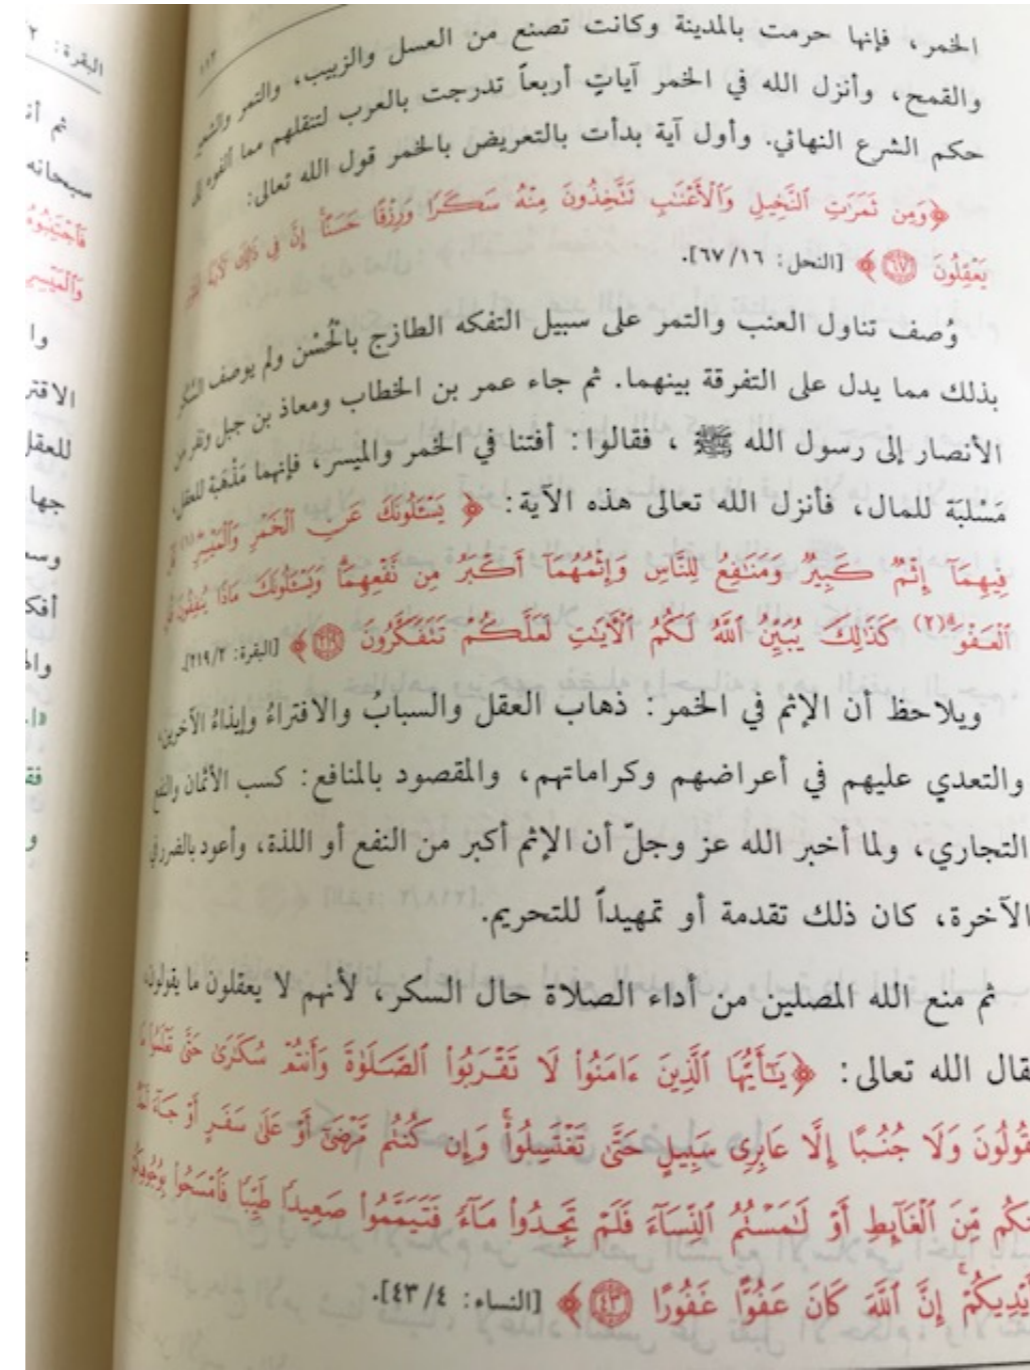 الخمر، فإنها حرمت بالمدينة وكانت تصنع من العسل والزبيب، والتمر والشعير
والقمح، وأنزل الله في الخمر آياتٍ أربعاً تدرجت بالعرب لتنقلهم مما ألفوه إلى
حكم الشرع النهائي. وأول آية بدأت بالتعريض بالخمر قول الله تعالى:
﴿وَمِن ثَمَرَٰتِ ٱلنَّخِيلِ وَٱلْأَعْنَٰبِ تَتَّخِذُونَ مِنْهُ سَكَرًا وَرِزْقًا حَسَنًا إِنَّ فِي ذَٰلِكَ لَأٓيَةً لِّقَوْمٍ
يَعْقِلُونَ ٦٧﴾ [النحل: ٦٧/١٦].
وُصف تناول العنب والتمر على سبيل التفكه الطازج بالْحُسْن ولم يوصف السَّكَر
بذلك مما يدل على التفرقة بينهما. ثم جاء عمر بن الخطاب ومعاذ بن جبل ونفر من
الأنصار إلى رسول الله ﷺ، فقالوا: أفتنا في الخمر والميسر، فإنهما مَذْهَبة للعقل،
مَسْلبَة للمال، فأنزل الله تعالى هذه الآية: ﴿يَسْـَٔلُونَكَ عَنِ ٱلْخَمْرِ وَٱلْمَيْسِرِ(١) قُلْ
فِيهِمَآ إِثْمٌ كَبِيرٌ وَمَنَٰفِعُ لِلنَّاسِ وَإِثْمُهُمَآ أَكْبَرُ مِن نَّفْعِهِمَا وَيَسْـَٔلُونَكَ مَاذَا يُنفِقُونَ قُلِ
ٱلْعَفْوَ(٢) كَذَٰلِكَ يُبَيِّنُ ٱللَّهُ لَكُمُ ٱلْأٓيَٰتِ لَعَلَّكُمْ تَتَفَكَّرُونَ ٢١٩﴾ [البقرة: ٢١٩/٢].
ويلاحظ أن الإثم في الخمر: ذهاب العقل والسبابُ والافتراءُ وإيذاءُ الآخرين،
والتعدي عليهم في أعراضهم وكراماتهم، والمقصود بالمنافع: كسب الأثمان والنفع
التجاري، ولما أخبر الله عز وجلّ أن الإثم أكبر من النفع أو اللذة، وأعود بالضرر في
الآخرة، كان ذلك تقدمة أو تمهيداً للتحريم.
ثم منع الله المصلين من أداء الصلاة حال السكر، لأنهم لا يعقلون ما يقولون،
فقال الله تعالى: ﴿يَٰٓأَيُّهَا ٱلَّذِينَ ءَامَنُوا۟ لَا تَقْرَبُوا۟ ٱلصَّلَوٰةَ وَأَنتُمْ سُكَٰرَىٰ حَتَّىٰ تَعْلَمُوا۟ مَا
تَقُولُونَ وَلَا جُنُبًا إِلَّا عَابِرِى سَبِيلٍ حَتَّىٰ تَغْتَسِلُوا۟ وَإِن كُنتُم مَّرْضَىٰٓ أَوْ عَلَىٰ سَفَرٍ أَوْ جَآءَ أَحَدٌ
مِّنكُم مِّنَ ٱلْغَآئِطِ أَوْ لَٰمَسْتُمُ ٱلنِّسَآءَ فَلَمْ تَجِدُوا۟ مَآءً فَتَيَمَّمُوا۟ صَعِيدًا طَيِّبًا فَٱمْسَحُوا۟ بِوُجُوهِكُمْ
وَأَيْدِيكُمْ إِنَّ ٱللَّهَ كَانَ عَفُوًّا غَفُورًا ٤٣﴾ [النساء: ٤٣/٤].
البقرة: ٢
ثم
سبحانه
فَٱجْتَنِبُوهُ
الاقتر
للعقل
جها